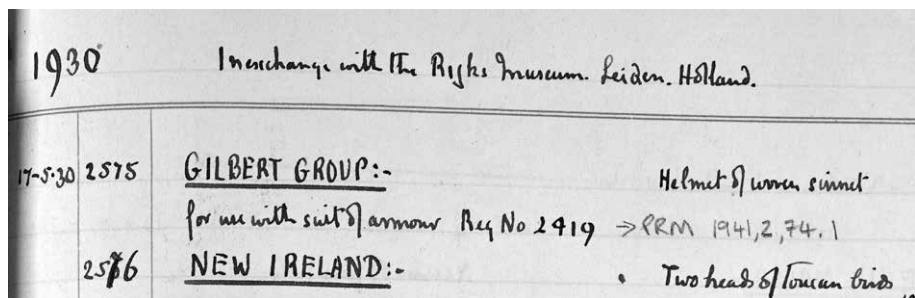 1930 In exchange with the Rijks Museum. Leiden. Holland.
17-5-30 2575 GILBERT GROUP:- Helmet of woven sinnet
for use with suit of armour Reg No 2419 → PRM 1941,2,74.1
2576 NEW IRELAND:- Two heads of Toucan birds